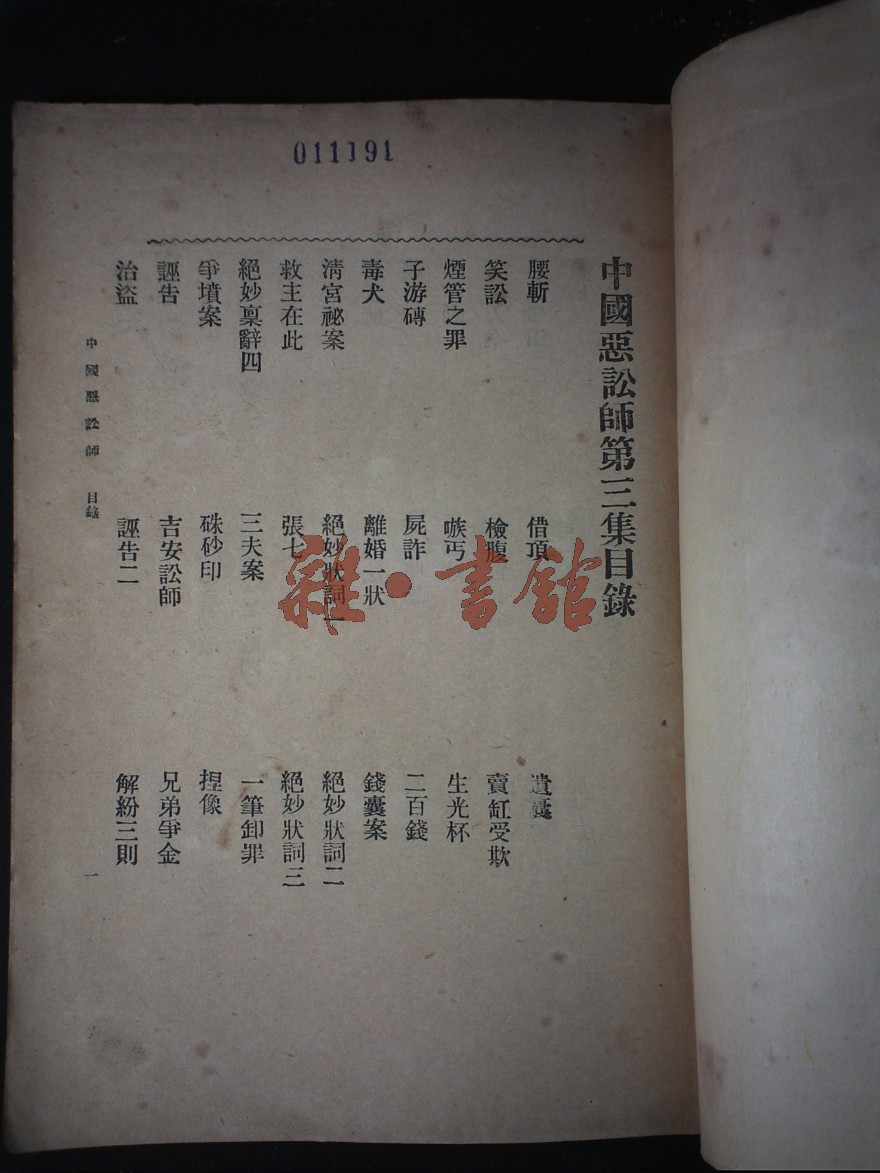 011191
中國惡訟師第三集目錄
腰斬 借項 遺囊
笑訟 檢腹 賣缸受欺
煙管之罪 嗾丐 生光杯
子游磚 屍詐 二百錢
毒犬 離婚一狀 錢囊案
淸宮祕案 絕妙狀詞一 絕妙狀詞二
救主在此 張七 絕妙狀詞三
絕妙稟辭四 三夫案 一筆卸罪
爭墳案 硃砂印 捏像
誣告 吉安訟師 兄弟爭金
治盜 誣告二 解紛三則
中國惡訟師 目錄 一
雜·書館